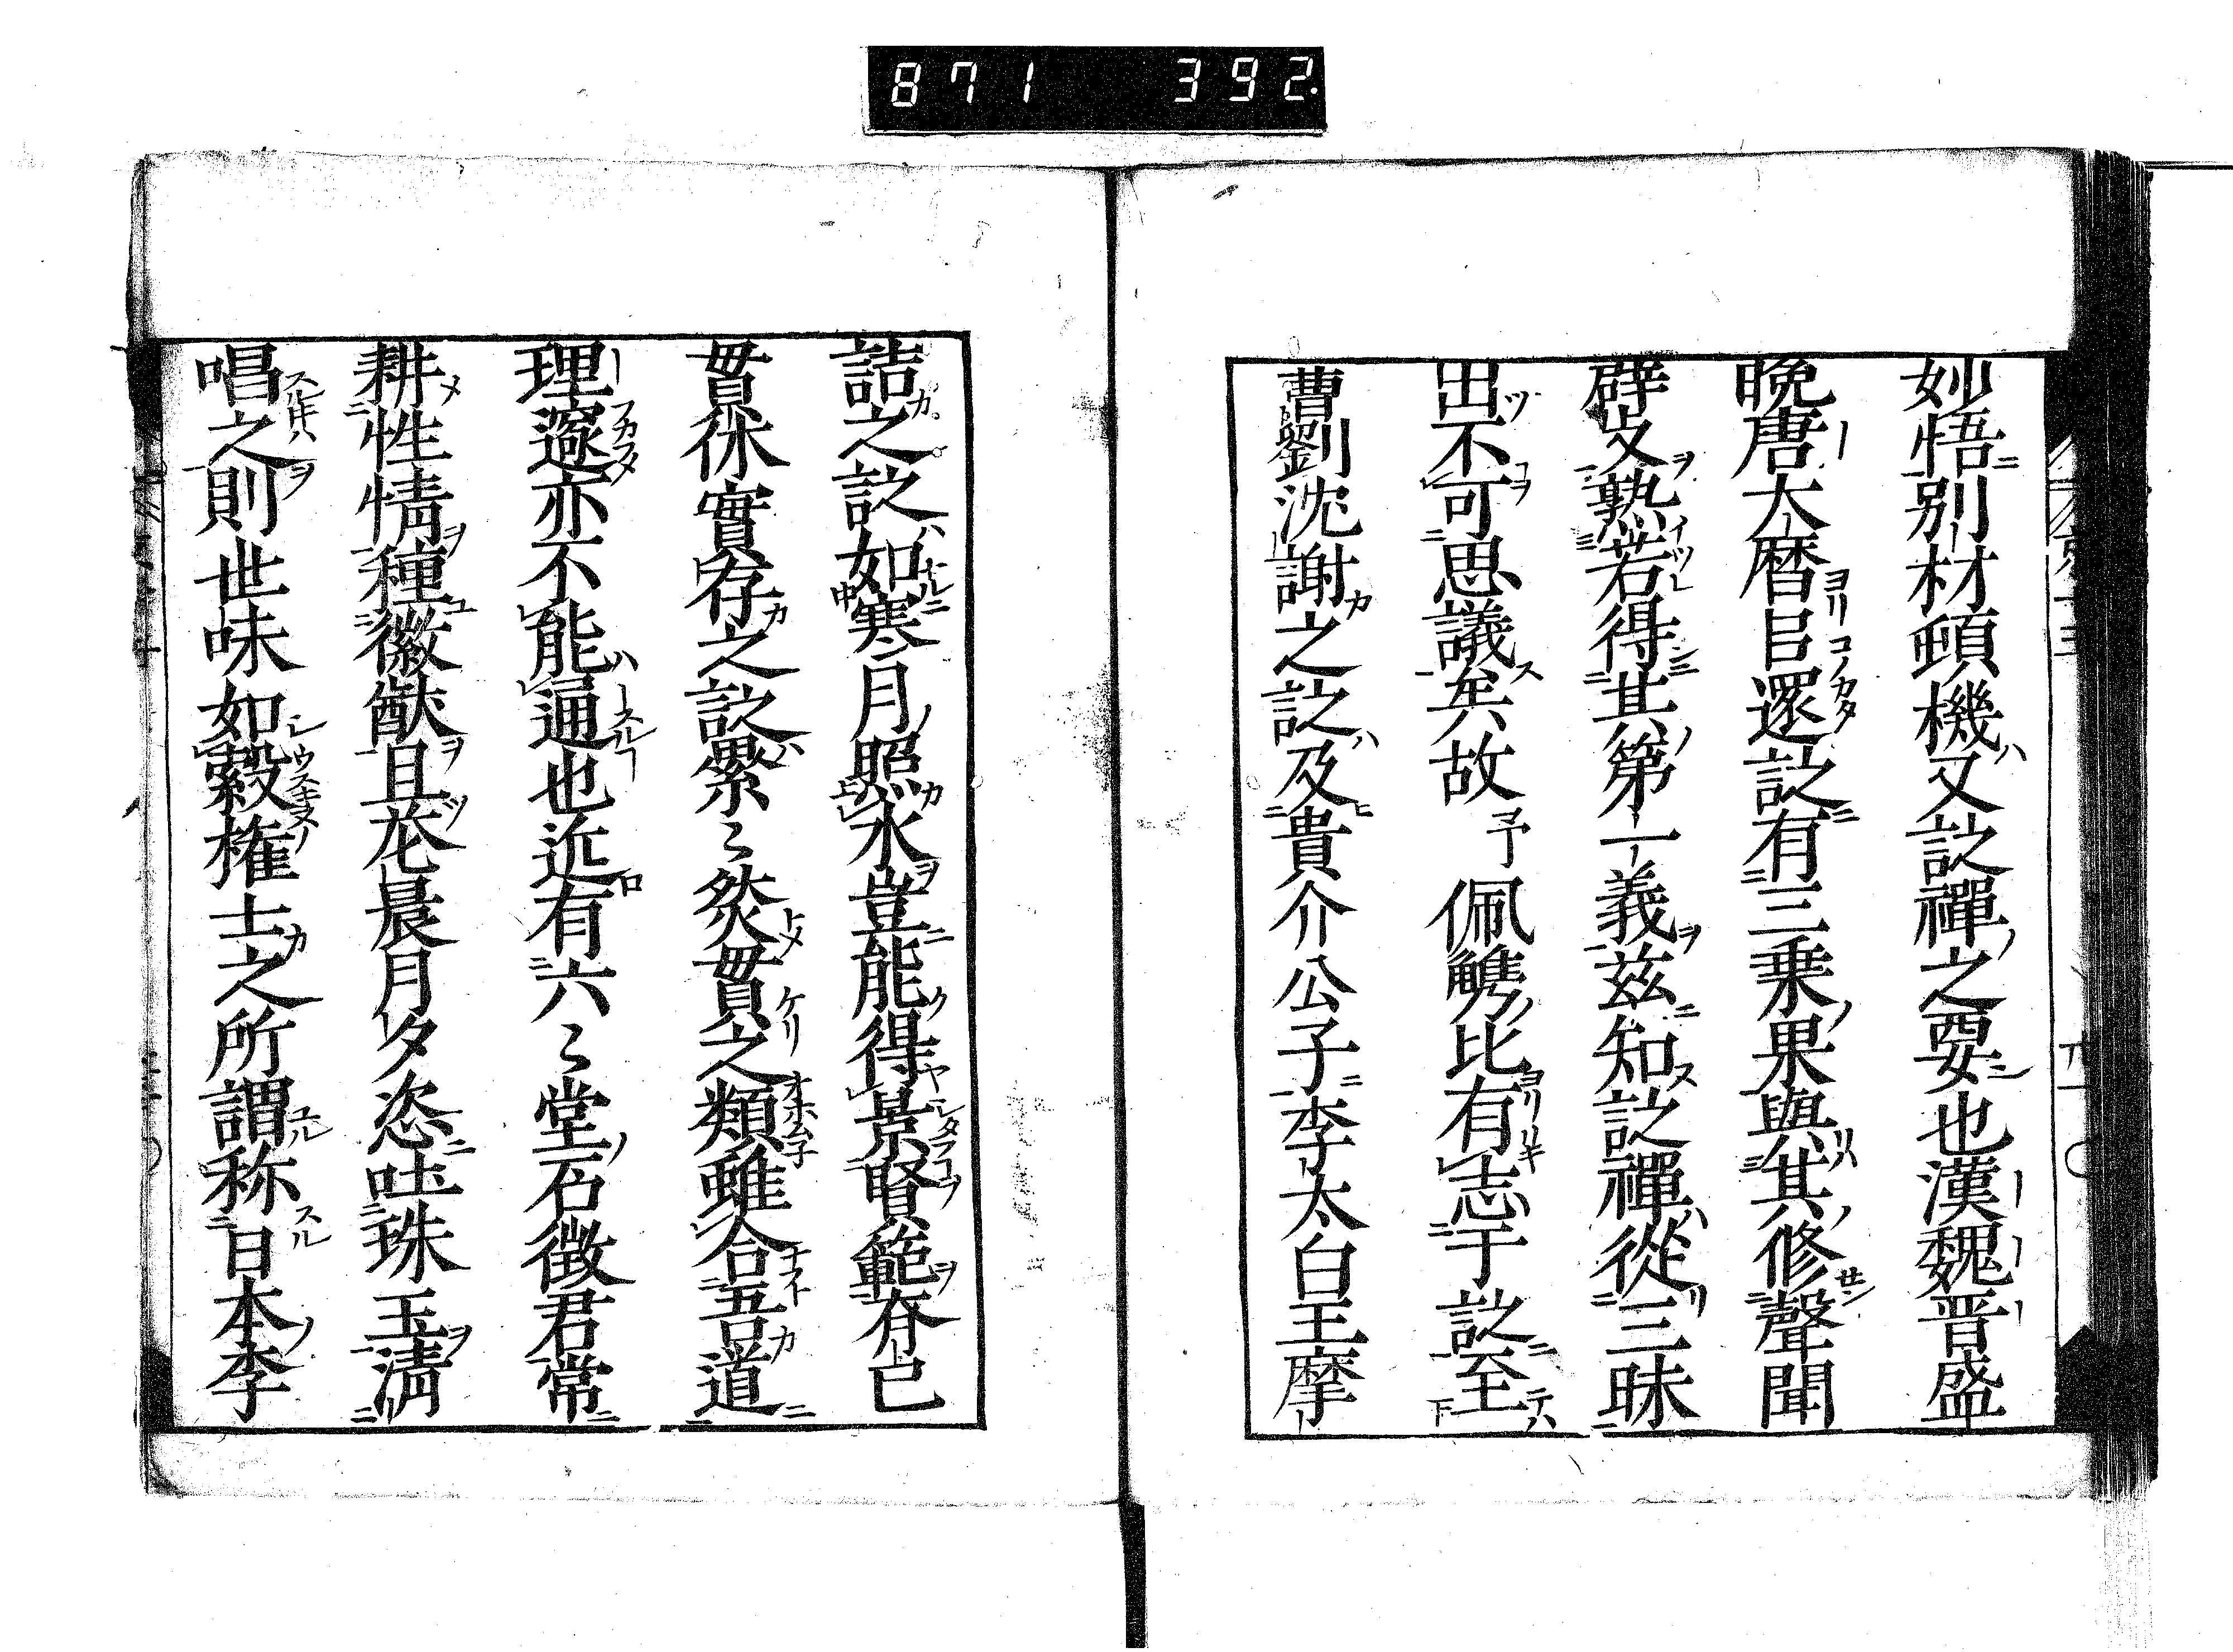 871 392.
妙悟別材頓機又詩禪之要也漢魏晋盛
晩唐大暦㠯還詩有三乗果與其修聲聞
辟支熟若得其第一義茲知詩禪從三昧
出不可思議矣故予佩觿比有志于詩至
曹劉沈謝之詩及貴介公子李太白王摩
詰之詩如寒月照水豈能得景賢範存已
貫休實存之詩累〻然貫之類雖合吾道
理邃亦不能通也近有六〻堂石徴君常
耕性情種徽猷且花晨月夕恣吐珠玉淸
唱之則世味如縠権士之所謂称日本李